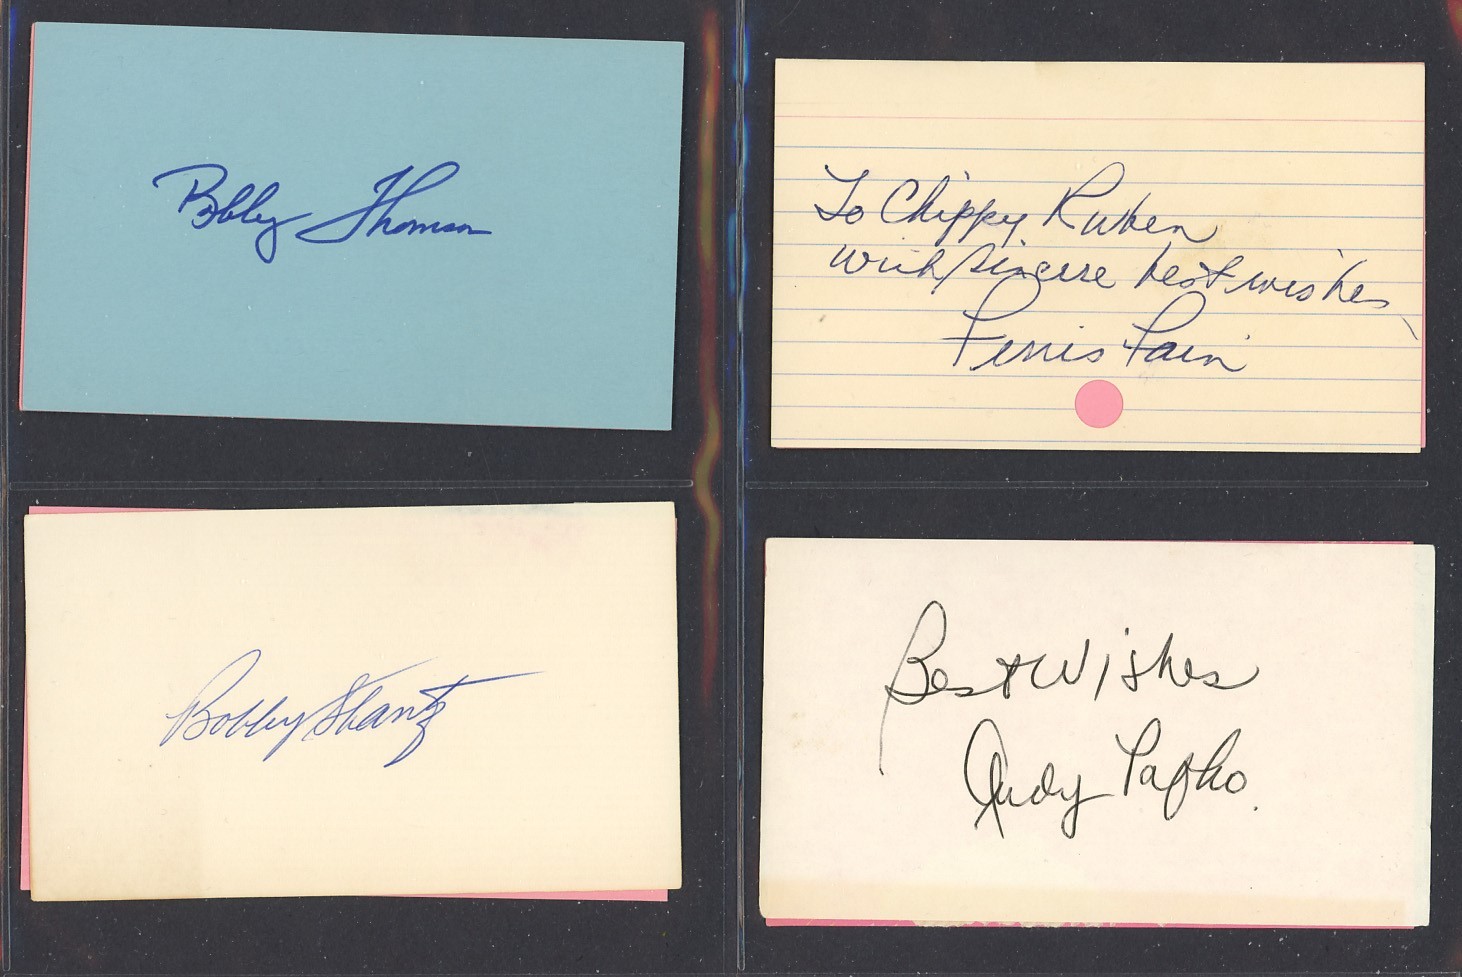 Bobby Thomson
To Chippy Ruben
with sincere best wishes,
Ferris Fain
Bobby Shantz
Best Wishes
Andy Pafko.